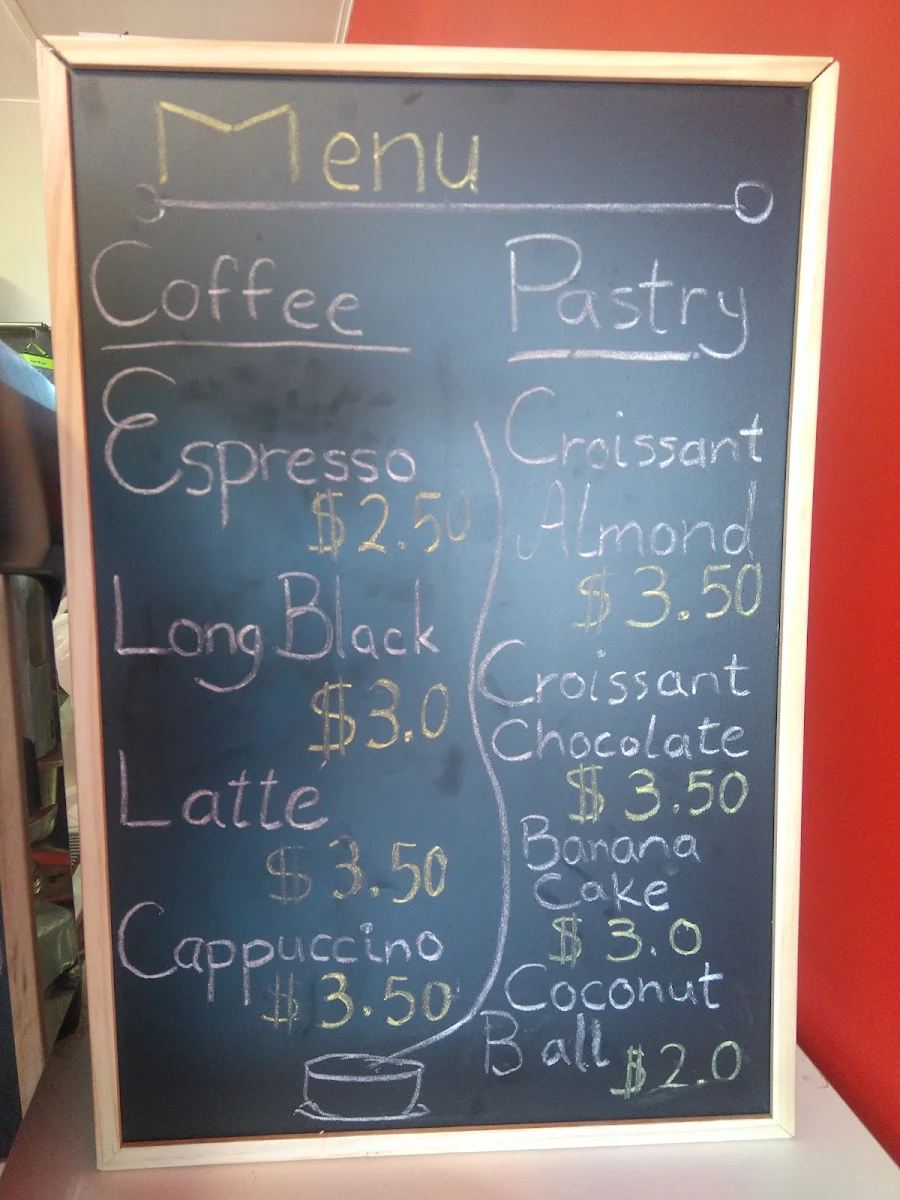 Menu
Coffee
Espresso
$2.50
Long Black
$3.0
Latté
$3.50
Cappuccino
$3.50
Pastry
Croissant
Almond
$3.50
Croissant
Chocolate
$3.50
Banana
Cake
$3.0
Coconut
Ball $2.0